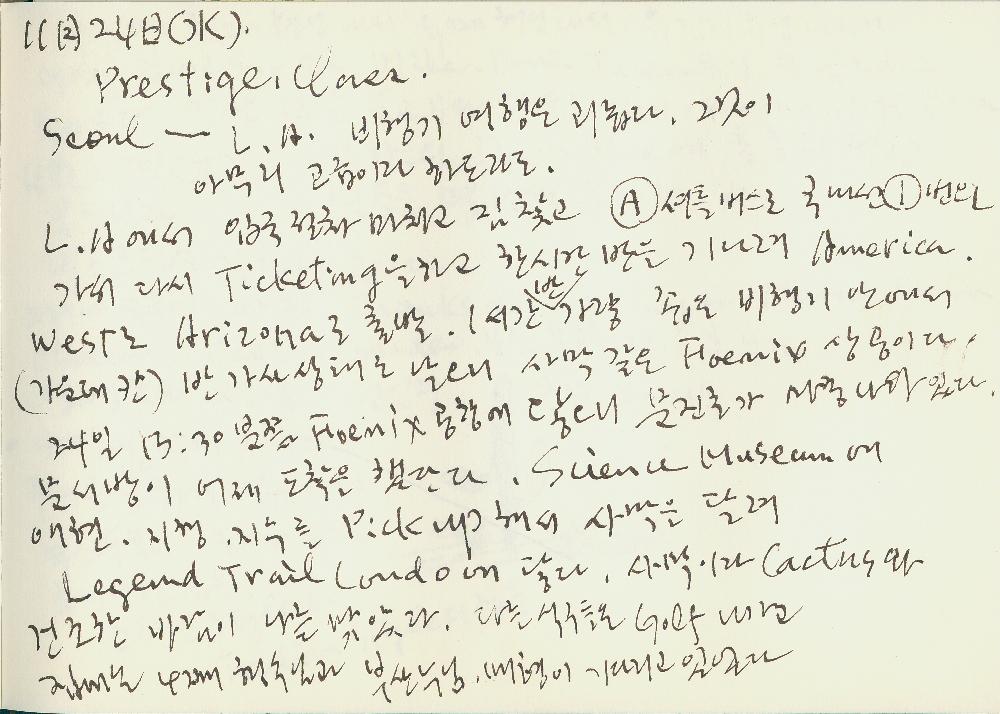 11月24日(OK).
Prestige. Class.
Seoul — L.A. 비행기 여행은 괴롭다. 그것이
아무리 고급이라 하드라도.
L.A에서 입국절차 마치고 짐 찾고 Ⓐ셔틀버스로 국내선 ①번의
가서 다시 Ticketing을 하고 한시간 반을 기다려 America.
West로 Arizona로 출발. 1시간 반 가량 좁은 비행기 안에서
(가운데 칸) 반 가사상태로 날으니 사막 같은 Foenix 상공이다.
24일 13:30분쯤 Foenix 공항에 닿으니 문전호가 마중나와 있다.
문서방이 어제 도착은 했단다. Science Museum에
애현. 지형. 지수를 Pick up해서 사막을 달려
Legend Trail Condo에 닿다. 사막이라 Cactus와
건조한 바람이 나를 맞았다. 다른 식구들은 Golf 나가고
집에는 부산누님. 기다리고 있었다